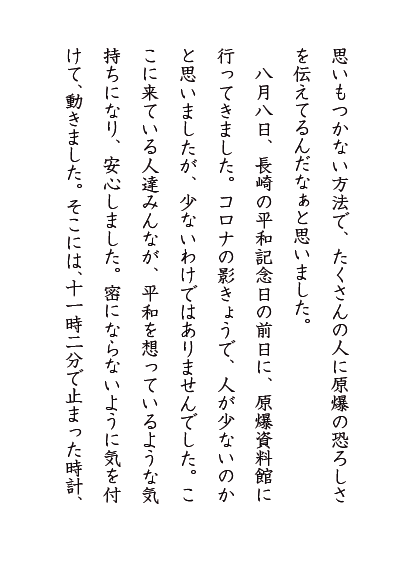 思いもつかない方法で、たくさんの人に原爆の恐ろしさ
を伝えてるんだなぁと思いました。
八月八日、長崎の平和記念日の前日に、原爆資料館に
行ってきました。コロナの影きょうで、人が少ないのか
と思いましたが、少ないわけではありませんでした。こ
こに来ている人達みんなが、平和を想っているような気
持ちになり、安心しました。密にならないように気を付
けて、動きました。そこには、十一時二分で止まった時計、